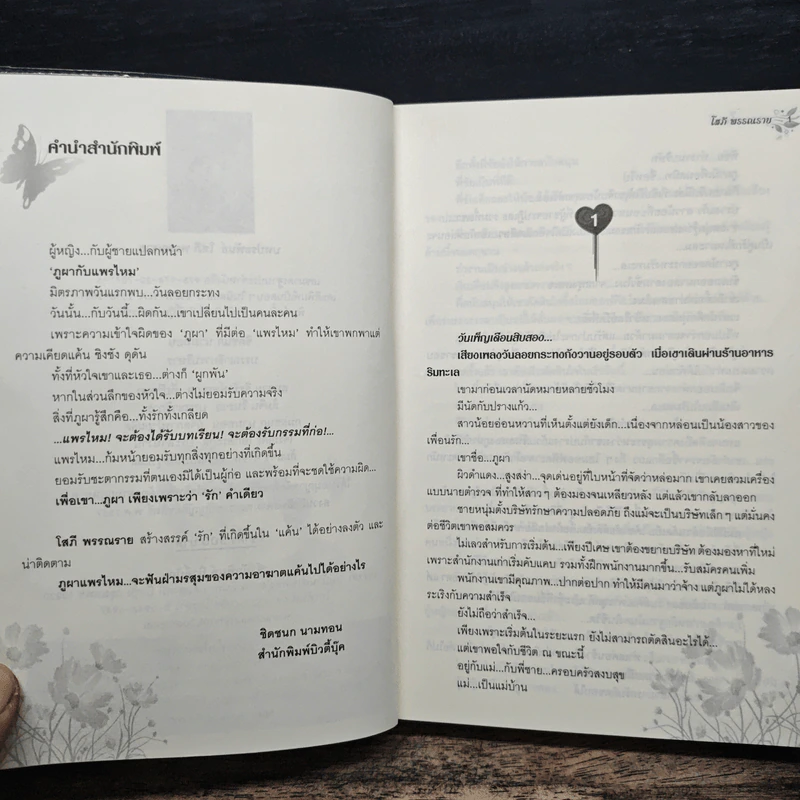 คำนำสำนักพิมพ์
ผู้หญิง...กับผู้ชายแปลกหน้า
'ภูผากับแพรไหม'
มิตรภาพวันแรกพบ...วันลอยกระทง
วันนั้น...กับวันนี้...ผิดกัน...เขาเปลี่ยนไปเป็นคนละคน
เพราะความเข้าใจผิดของ 'ภูผา' ที่มีต่อ 'แพรไหม' ทำให้เขาพกพาแต่
ความเคียดแค้น ชิงชัง ดุดัน
ทั้งที่หัวใจเขาและเธอ...ต่างก็ 'ผูกพัน'
หากในส่วนลึกของหัวใจ...ต่างไม่ยอมรับความจริง
สิ่งที่ภูผารู้สึกคือ...ทั้งรักทั้งเกลียด
...แพรไหม! จะต้องได้รับบทเรียน! จะต้องรับกรรมที่ก่อ!...
แพรไหม...ก้มหน้ายอมรับทุกสิ่งทุกอย่างที่เกิดขึ้น
ยอมรับชะตากรรมที่ตนเองมิได้เป็นผู้ก่อ และพร้อมที่จะชดใช้ความผิด...
เพื่อเขา...ภูผา เพียงเพราะว่า 'รัก' คำเดียว
โสภี พรรณราย สร้างสรรค์ 'รัก' ที่เกิดขึ้นใน 'แค้น' ได้อย่างลงตัว และ
น่าติดตาม
ภูผาแพรไหม...จะฟันฝ่ามรสุมของความอาฆาตแค้นไปได้อย่างไร
ชิดชนก นามทอน
สำนักพิมพ์บิวตี้บุ๊ค
โสภี พรรณราย 1
1
วันเพ็ญเดือนสิบสอง...
เสียงเพลงวันลอยกระทงกังวานอยู่รอบตัว เมื่อเขาเดินผ่านร้านอาหาร
ริมทะเล
เขามาก่อนเวลานัดหมายหลายชั่วโมง
มีนัดกับปรางแก้ว...
สาวน้อยอ่อนหวานที่เห็นตั้งแต่ยังเด็ก...เนื่องจากหล่อนเป็นน้องสาวของ
เพื่อนรัก...
เขาชื่อ...ภูผา
ผิวดำแดง...สูงสง่า...จุดเด่นอยู่ที่ใบหน้าที่จัดว่าหล่อมาก เขาเคยสวมเครื่อง
แบบนายตำรวจ ที่ทำให้สาวๆ ต้องมองจนเหลียวหลัง แต่แล้วเขากลับลาออก
ชายหนุ่มตั้งบริษัทรักษาความปลอดภัย ถึงแม้จะเป็นบริษัทเล็กๆ แต่มั่นคง
ต่อชีวิตเขาพอสมควร
ไม่เลวสำหรับการเริ่มต้น...เพียงปีเศษ เขาต้องขยายบริษัท ต้องมองหาที่ใหม่
เพราะสำนักงานเก่าเริ่มคับแคบ รวมทั้งฝึกพนักงานมากขึ้น...รับสมัครคนเพิ่ม
พนักงานเขามีคุณภาพ...ปากต่อปาก ทำให้มีคนมาว่าจ้าง แต่ภูผาไม่ได้หลง
ระเริงกับความสำเร็จ
ยังไม่ถือว่าสำเร็จ...
เพียงเพราะเริ่มต้นในระยะแรก ยังไม่สามารถตัดสินอะไรได้...
แต่เขาพอใจกับชีวิต ณ ขณะนี้
อยู่กับแม่...กับพี่ชาย...ครอบครัวสงบสุข
แม่...เป็นแม่บ้าน